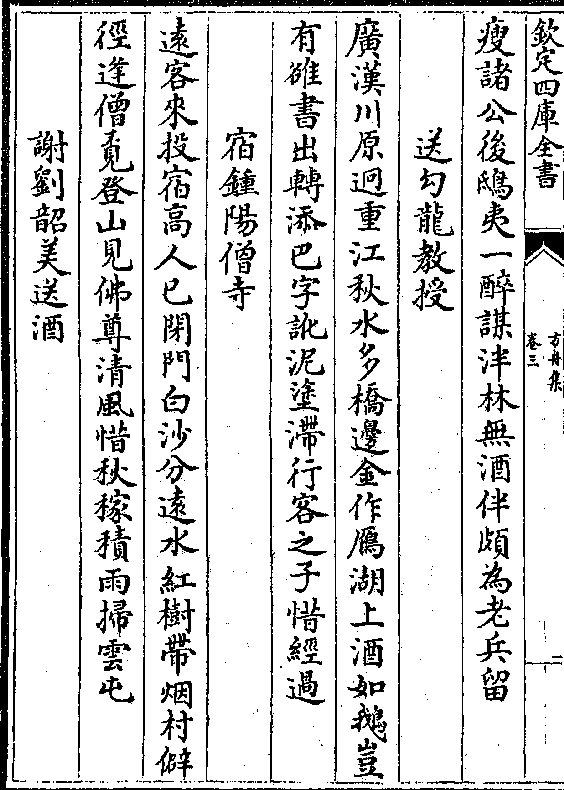 欽定四庫全書
方舟集
卷三
二
瘦諸公後鴟夷一醉謀泮林無酒伴頗為老兵留
送勾龍教授
廣漢川原迥重江秋水多橋邊金作鴈湖上酒如鵝豈
有雒書出轉添巴字訛泥塗滯行客之子惜經過
宿鍾陽僧寺
遠客來投宿高人已閉門白沙分遠水紅樹帶烟村僻
徑逢僧覔登山見佛尊清風惜秋稼積雨掃雲屯
謝劉韶美送酒